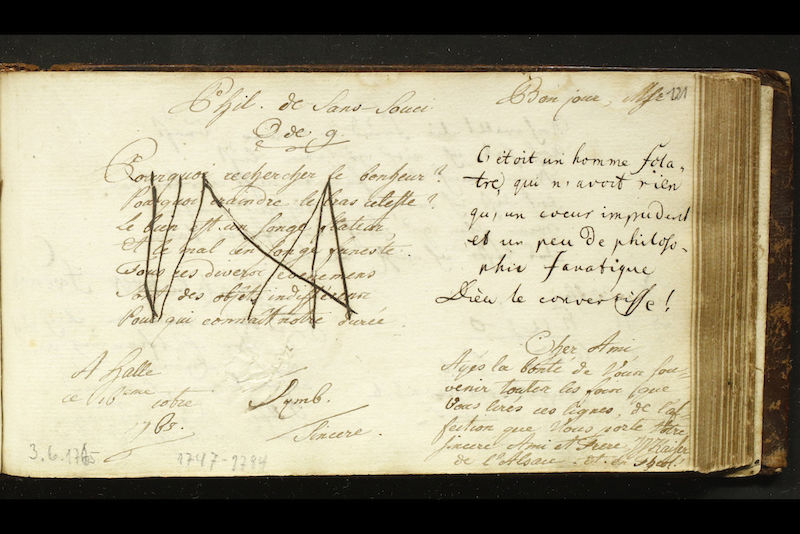 Phil. de Sans-Souci
Pourquoi rechercher le bonheur?
Pourquoi craindre le bras celeste?
Le bien est un songe flateur
Et le mal un songe funeste.
Tous ces divers evenemens
Sont des objets indifferens
Pour qui connait notre durée.
A Halle
ce 16me 10bre
1765.
Symb.
Sincere.
3.6.1765
1747-1794
Bon jour,
121
C'étoit un homme fola-
tre, qui n'avoit rien
qu'un coeur imprudent
et un peu de philoso-
phie fanatique
Dieu le convertisse!
Cher Ami
Ayés la bonté de Vous sou-
venir toutes les fois que
Vous lires ces lignes, de l'af-
fection que Vous porte Votre
sincere Ami et Frere
de l'Alsace